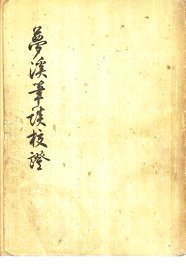 夢溪筆談校證